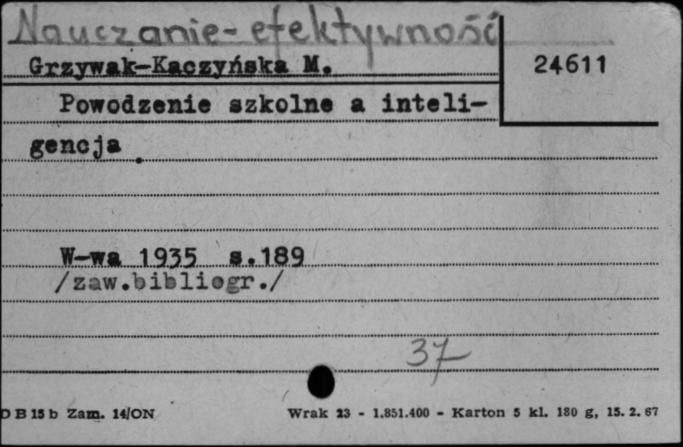 Nauczanie-efektywność
Grzywak-Kaczyńska M.
24611
Powodzenie szkolne a inteli-
gencja.
W-wa 1935 s.189
/zaw.bibliogr./
37
D B 15 b Zam. 14/ON
Wrak 23 - 1.851.400 - Karton 5 kl. 180 g, 15. 2. 67